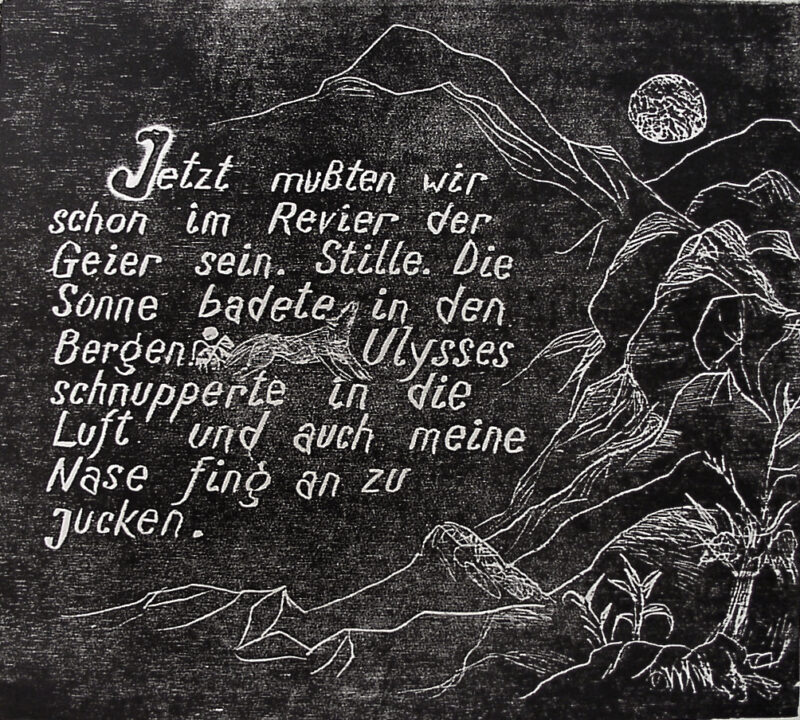 Jetzt mußten wir
schon im Revier der
Geier sein. Stille. Die
Sonne badete in den
Bergen. Ulysses
schnupperte in die
Luft und auch meine
Nase fing an zu
jucken.